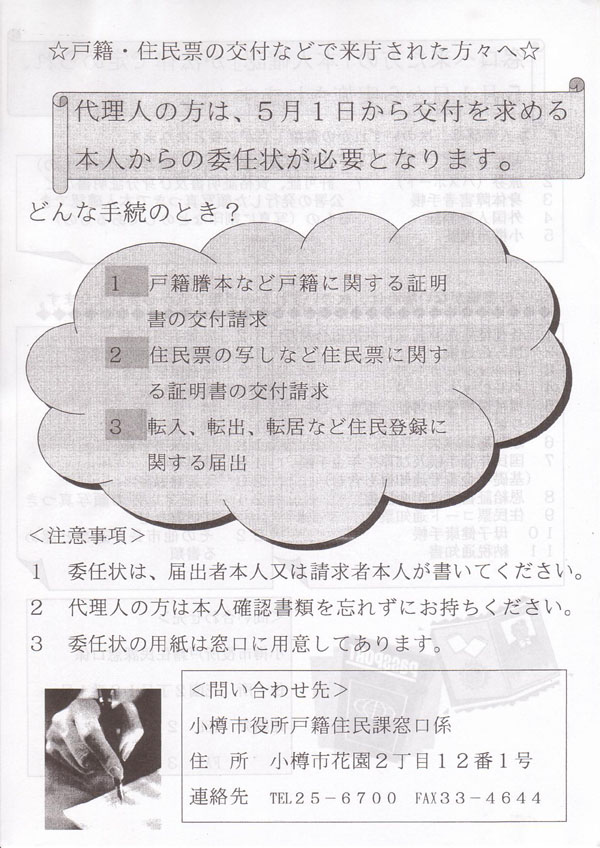 ☆戸籍・住民票の交付などで来庁された方々へ☆
代理人の方は、５月１日から交付を求める
本人からの委任状が必要となります。
どんな手続のとき？
１　戸籍謄本など戸籍に関する証明
書の交付請求
２　住民票の写しなど住民票に関す
る証明書の交付請求
３　転入、転出、転居など住民登録に
関する届出
＜注意事項＞
１　委任状は、届出者本人又は請求者本人が書いてください。
２　代理人の方は本人確認書類を忘れずにお持ちください。
３　委任状の用紙は窓口に用意してあります。
＜問い合わせ先＞
小樽市役所戸籍住民課窓口係
住　所　小樽市花園２丁目１２番１号
連絡先　TEL２５－６７００　FAX３３－４６４４